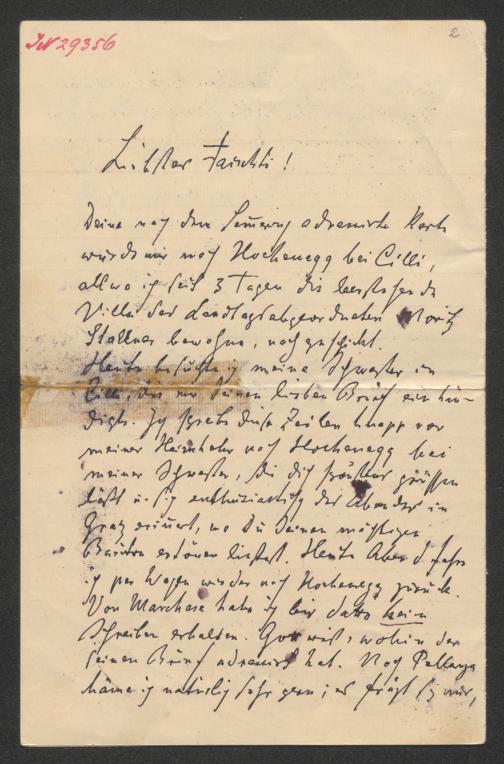 JN 29356
2
Liebster Faischti!
Deine nach dem Semering adressirte Karte
wurde mir nach Hochenegg bei Cilli,
allwo ich seit 3 Tagen die leerstehende
Villa des Landtagsabgeordneten Moritz
Stallner bewohne, nachgeschickt.
Heute besuchte ich meine Schwester in
Cilli, die mir Deinen lieben Brief einhän-
digte. Ich schreibe diese Zeilen knapp vor
meiner Heimkehr nach Hochenegg bei
meiner Schwester, die Dich grüssen
läßt u. sich enthusiastisch des Abendes in
Graz erinert, wo Du Deinen mächtigen
Bariton ertönen liessest. Heute Abend fahre
ich per Wagen wieder nach Hochenegg zurück.
Von Marchese habe ich bis dato kein
Schreiben erhalten. Gott weiß, wohin der
seinen Brief adressirt hat. Nach Pallanza
käme ich natürlich sehr gern; es frägt sich nur,